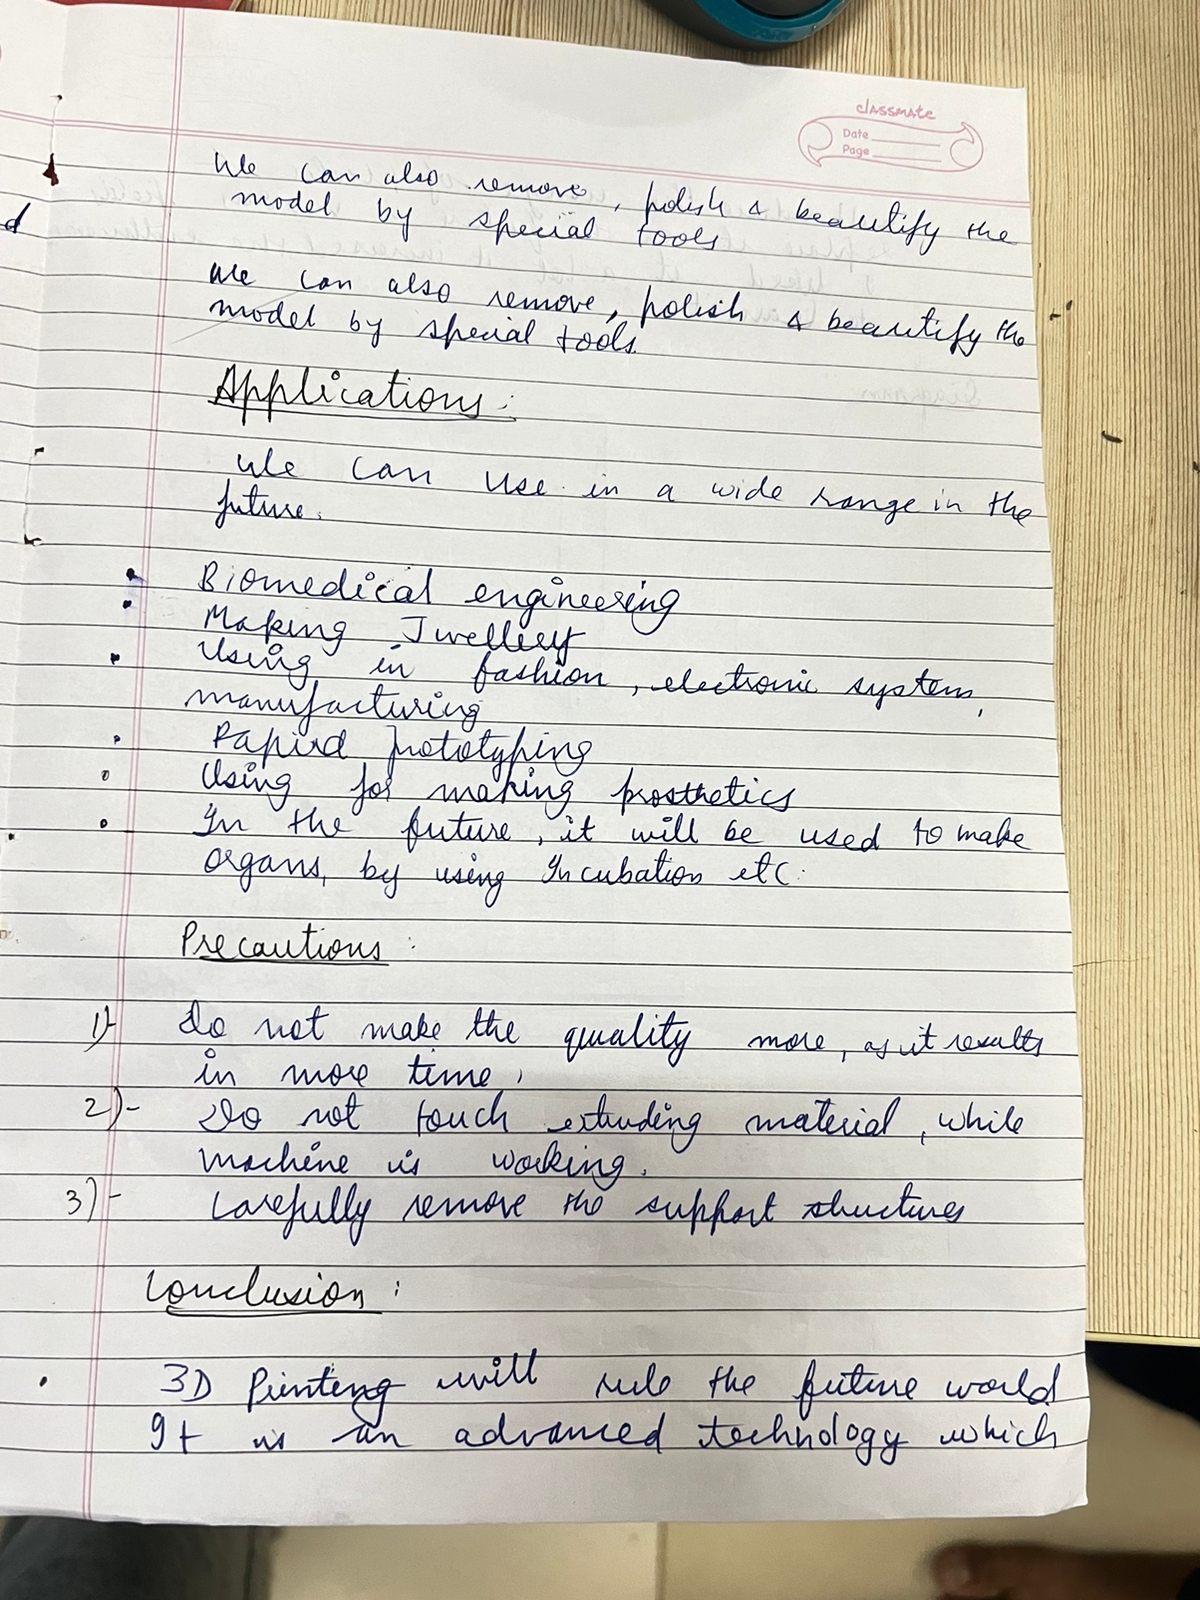 classmate
Date
Page
We can also remove, polish & beautify the
model by special tools
We can also remove, polish & beautify the
model by special tools.
Applications:
We can use in a wide range in the
future.
Biomedical engineering
Making Jwellery
Using in fashion, electronic system,
manufacturing
Rapid prototyping
Using for making prosthetics
In the future, it will be used to make
organs, by using Incubation etc.
Precautions:
1)- Do not make the quality more, as it results
in more time.
2)- Do not touch extruding material, while
machine is working.
3)- Carefully remove the support structures
Conclusion:
3D Printing will rule the future world
It is an advanced technology which